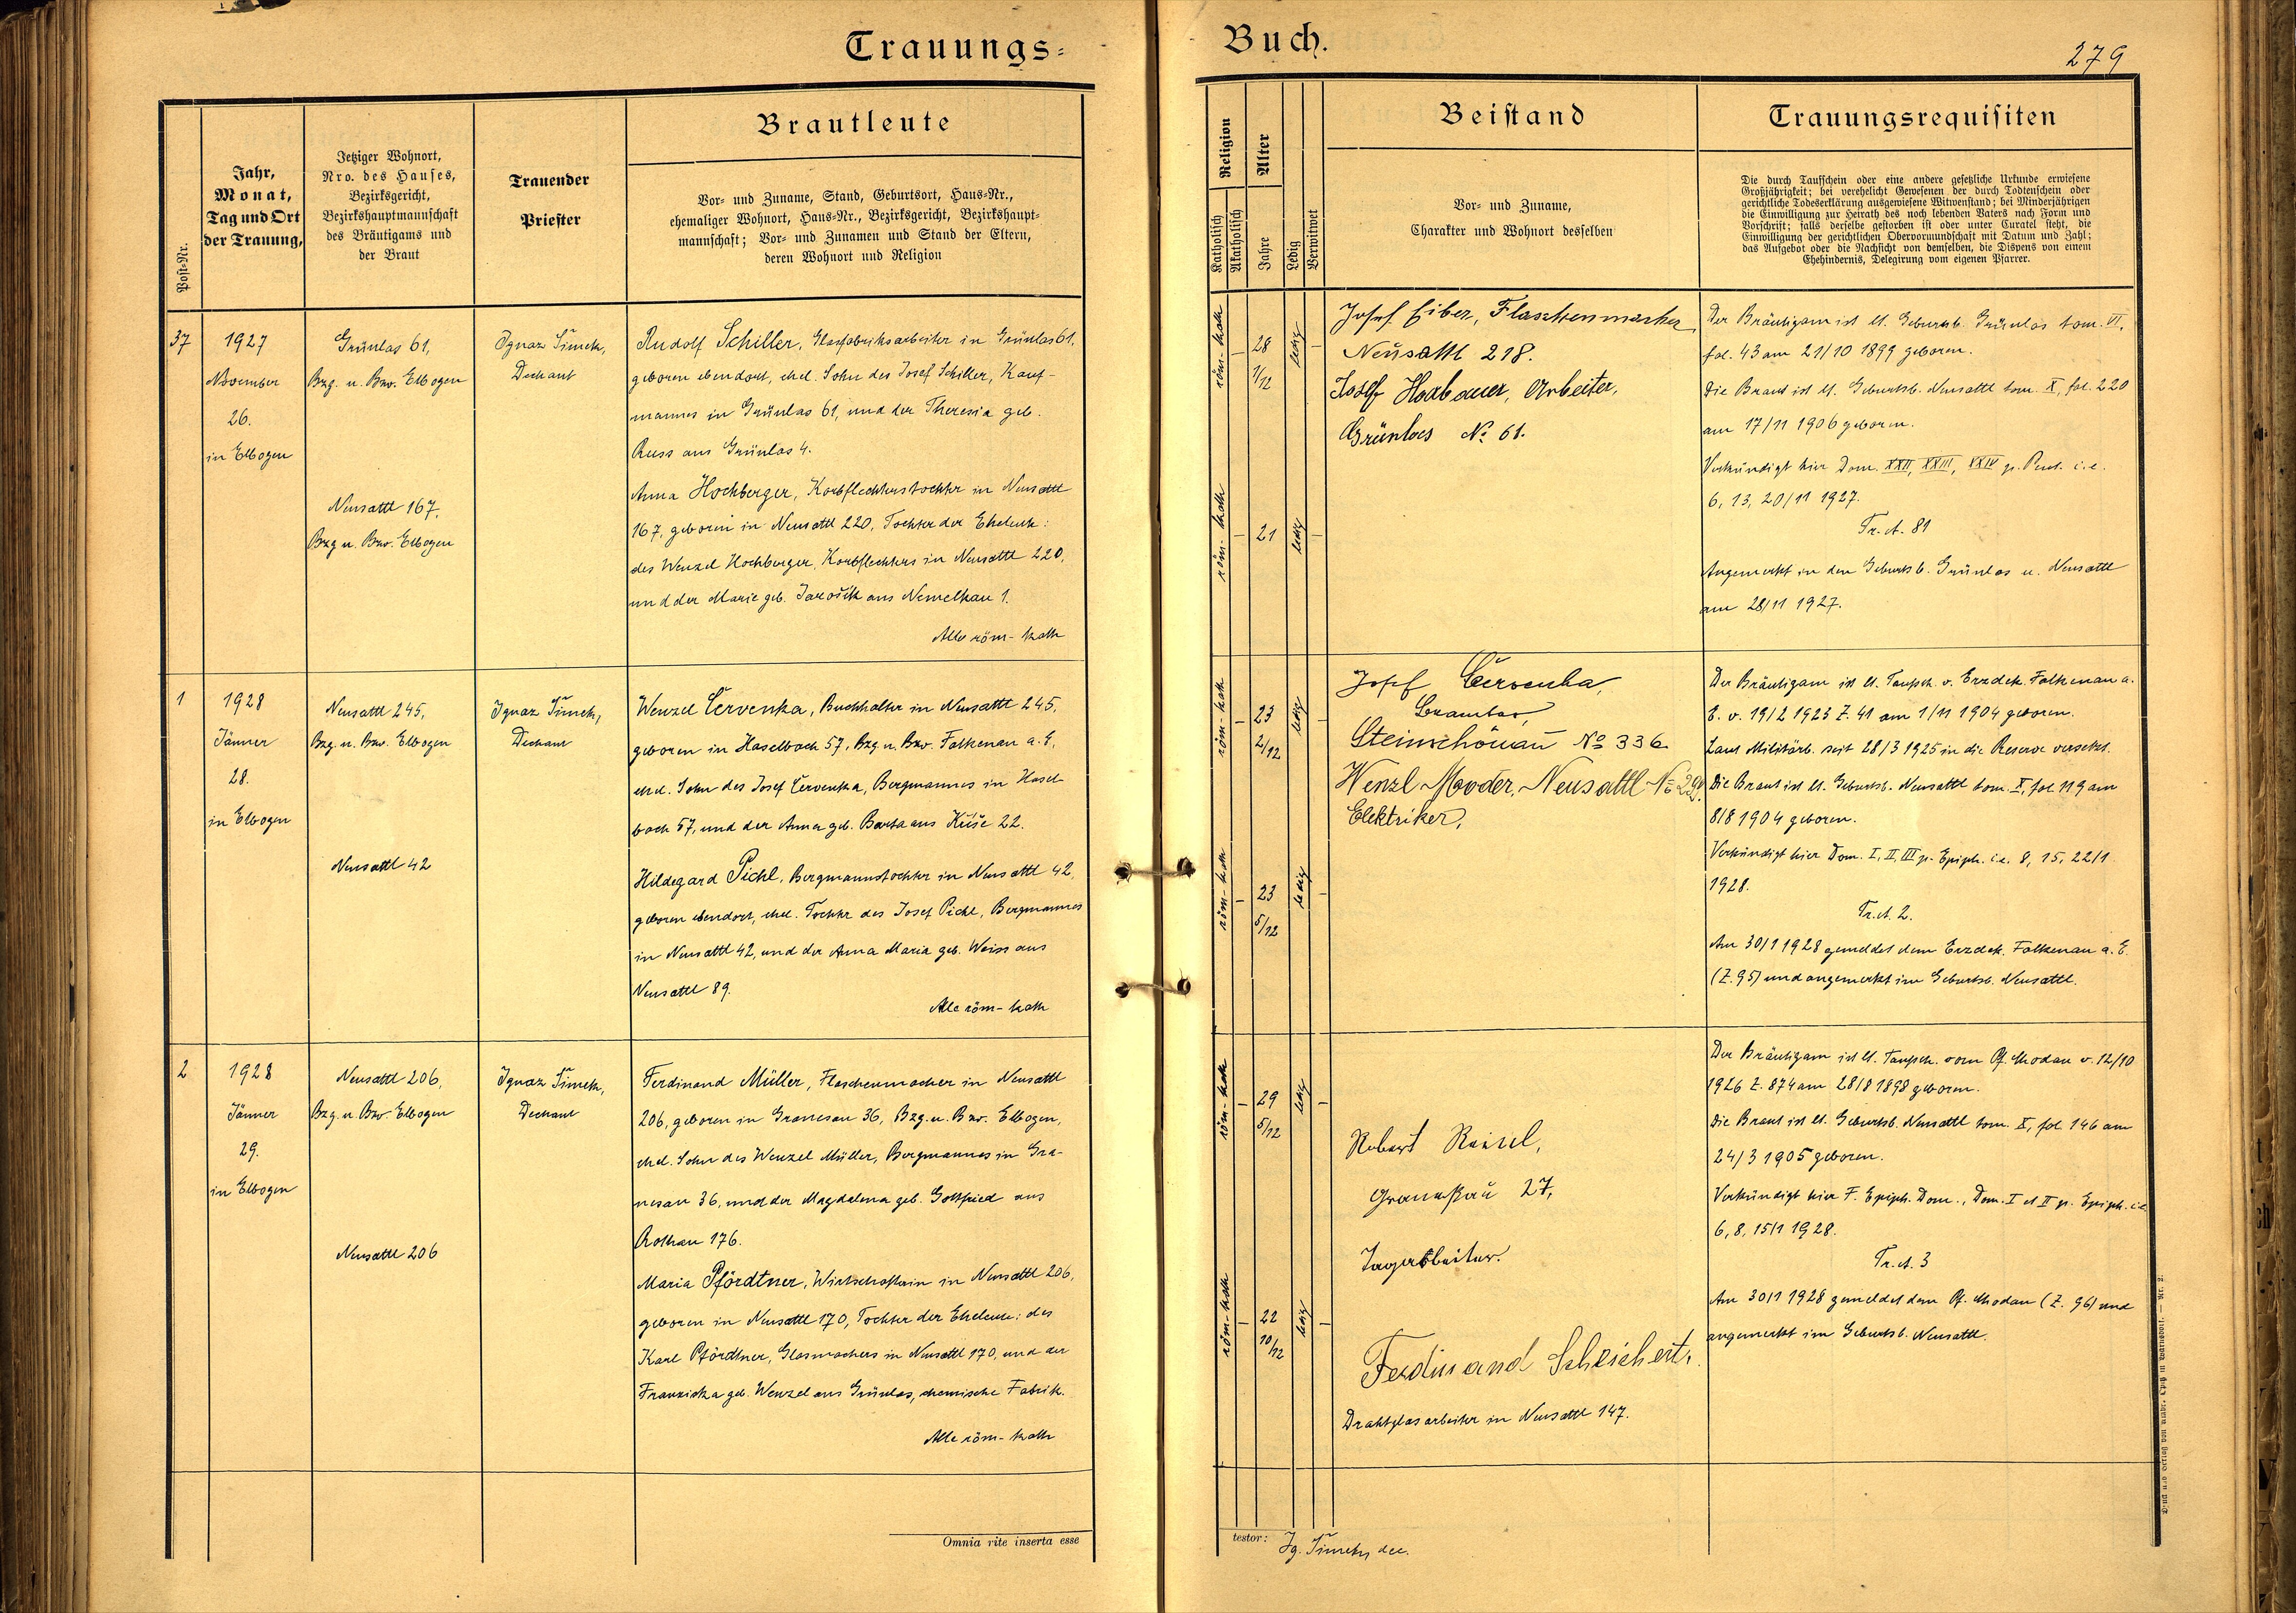 Trauungs-
Buch.
279
Post-Nr.
Jahr,
Monat,
Tag und Ort
der Trauung,
Jetziger Wohnort,
Nro. des Hauses,
Bezirksgericht,
Bezirkshauptmannschaft
des Bräutigams und
der Braut
Trauender
Priester
Brautleute
Vor- und Zuname, Stand, Geburtsort, Haus-Nr.,
ehemaliger Wohnort, Haus-Nr., Bezirksgericht, Bezirkshaupt-
mannschaft; Vor- und Zunamen und Stand der Eltern,
deren Wohnort und Religion
Religion
Katholisch
Akatholisch
Alter
Jahre
Ledig
Verwitwet
Beistand
Vor- und Zuname,
Charakter und Wohnort desselben
Trauungsrequisiten
Die durch Taufschein oder eine andere gesetzliche Urkunde erwiesene
Großjährigkeit; bei verehelicht Gewesenen der durch Todtenschein oder
gerichtliche Todeserklärung ausgewiesene Witwenstand; bei Minderjährigen
die Einwilligung zur Heirath des noch lebenden Vaters nach Form und
Vorschrift; falls derselbe gestorben ist oder unter Curatel steht, die
Einwilligung der gerichtlichen Obervormundschaft mit Datum und Zahl;
das Aufgebot oder die Nachsicht von demselben, die Dispens von einem
Ehehindernis, Delegirung vom eigenen Pfarrer.
37
1927
November
26.
in Elbogen
Grünlas 61,
Bzg. u. Bzv. Elbogen
Neusattl 167,
Bzg u. Bzv. Elbogen
Ignaz Šimek,
Dechant
Rudolf Schiller, Glasfabriksarbeiter in Grünlas 61,
geboren ebendort, ehel. Sohn des Josef Schiller, Kauf-
mannes in Grünlas 61, und der Theresia geb.
Russ aus Grünlas 4.
Anna Hochberger, Korbflechterstochter in Neusattl
167, geboren in Neusattl 220, Tochter der Eheleute:
des Wenzel Hochberger, Korbflechters in Neusattl 220,
und der Marie geb. Jarošik aus Nemelkau 1.
Alle röm-kath
röm-kath
28
1/12
ledig
röm-kath
21
ledig
Josef Eiber, Flaschenmacher
Neusattl 218.
Josef Haxbauer, Arbeiter,
Grünlas No 61.
Der Bräutigam ist lt. Geburtsb. Grünlas tom. VI,
fol. 43 am 21/10 1899 geboren.
Die Braut ist lt. Geburtsb. Neusattl tom. X, fol. 220
am 17/11 1906 geboren.
Verkündigt hier Dom. XXII, XXIII, XXIV p. Pent. i.e.
6, 13, 20/11 1927.
Tr. A. 81
Angemerkt in den Geburtsb. Grünlas u. Neusattl
am 28/11 1927.
1
1928
Jänner
28.
in Elbogen
Neusattl 245,
Bzg. u. Bzv. Elbogen
Neusattl 42
Ignaz Šimek,
Dechant
Wenzel Červenka, Buchhalter in Neusattl 245,
geboren in Haselbach 57, Bzg u. Bzv. Falkenau a. E,
ehel. Sohn des Josef Červenka, Bergmannes in Hasel-
bach 57, und der Anna geb. Barta aus Kůše 22.
Hildegard Pichl, Bergmannstochter in Neusattl 42,
geboren ebendort, ehel. Tochter des Josef Pichl, Bergmannes
in Neusattl 42, und der Anna Maria geb. Weiss aus
Neusattl 89.
Alle röm-kath
röm-kath
23
2/12
ledig
röm-kath
23
5/12
ledig
Josef Červenka,
Beamter,
Steinschönau No 336
Wenzl Mooder, Neusattl No 290.
Elektriker,
Der Bräutigam ist lt. Taufsch. v. Erzdek. Falkenau a.
E. v. 19/2 1923 Z. 41 am 1/11 1904 geboren.
Laut Militärb. seit 28/3 1925 in die Reserve versetzt.
Die Braut ist lt. Geburtsb. Neusattl tom. X, fol 119 am
8/8 1904 geboren.
Verkündigt hier Dom. I, II, III p. Epiph. i.e. 8, 15, 22/1
1928.
Tr. A. 2.
Am 30/1 1928 gemeldet dem Erzdek. Falkenau a. E.
(Z. 95) und angemerkt im Geburtsb. Neusattl.
2
1928
Jänner
29.
in Elbogen
Neusattl 206,
Bzg. u. Bzv. Elbogen
Neusattl 206
Ignaz Šimek,
Dechant
Ferdinand Müller, Flaschenmacher in Neusattl
206, geboren in Granesau 36, Bzg. u. Bzv. Elbogen,
ehel. Sohn des Wenzel Müller, Bergmannes in Gra-
nesau 36, und der Magdalena geb. Gottfried aus
Rothau 176.
Maria Pfördtner, Wirtschafterin in Neusattl 206,
geboren in Neusattl 170, Tochter der Eheleute: des
Karl Pfördtner, Glasmachers in Neusattl 170, und der
Franziska geb. Wenzel aus Grünlas, chemische Fabrik.
Alle röm-kath
röm-kath
29
5/12
ledig
röm-kath
22
10/12
ledig
Robert
27,
Tagarbeiter.
Ferdinand Scheichert,
Drahtglasarbeiter in Neusattl 147.
Der Bräutigam ist lt. Taufsch. vom Pf. Chodau v. 12/10
1926 Z. 874 am 28/8 1898 geboren.
Die Braut ist lt. Geburtsb. Neusattl tom. X, fol. 146 am
24/3 1905 geboren.
Verkündigt hier F. Epiph. Dom., Dom. I et II p. Epiph. i.e
6, 8, 15/1 1928.
Tr. A. 3
Am 30/1 1928 gemeldet dem Pf. Chodau (Z. 96) und
angemerkt im Geburtsb. Neusattl.
Omnia rite inserta esse
testor:
Ig. Šimek, dec.